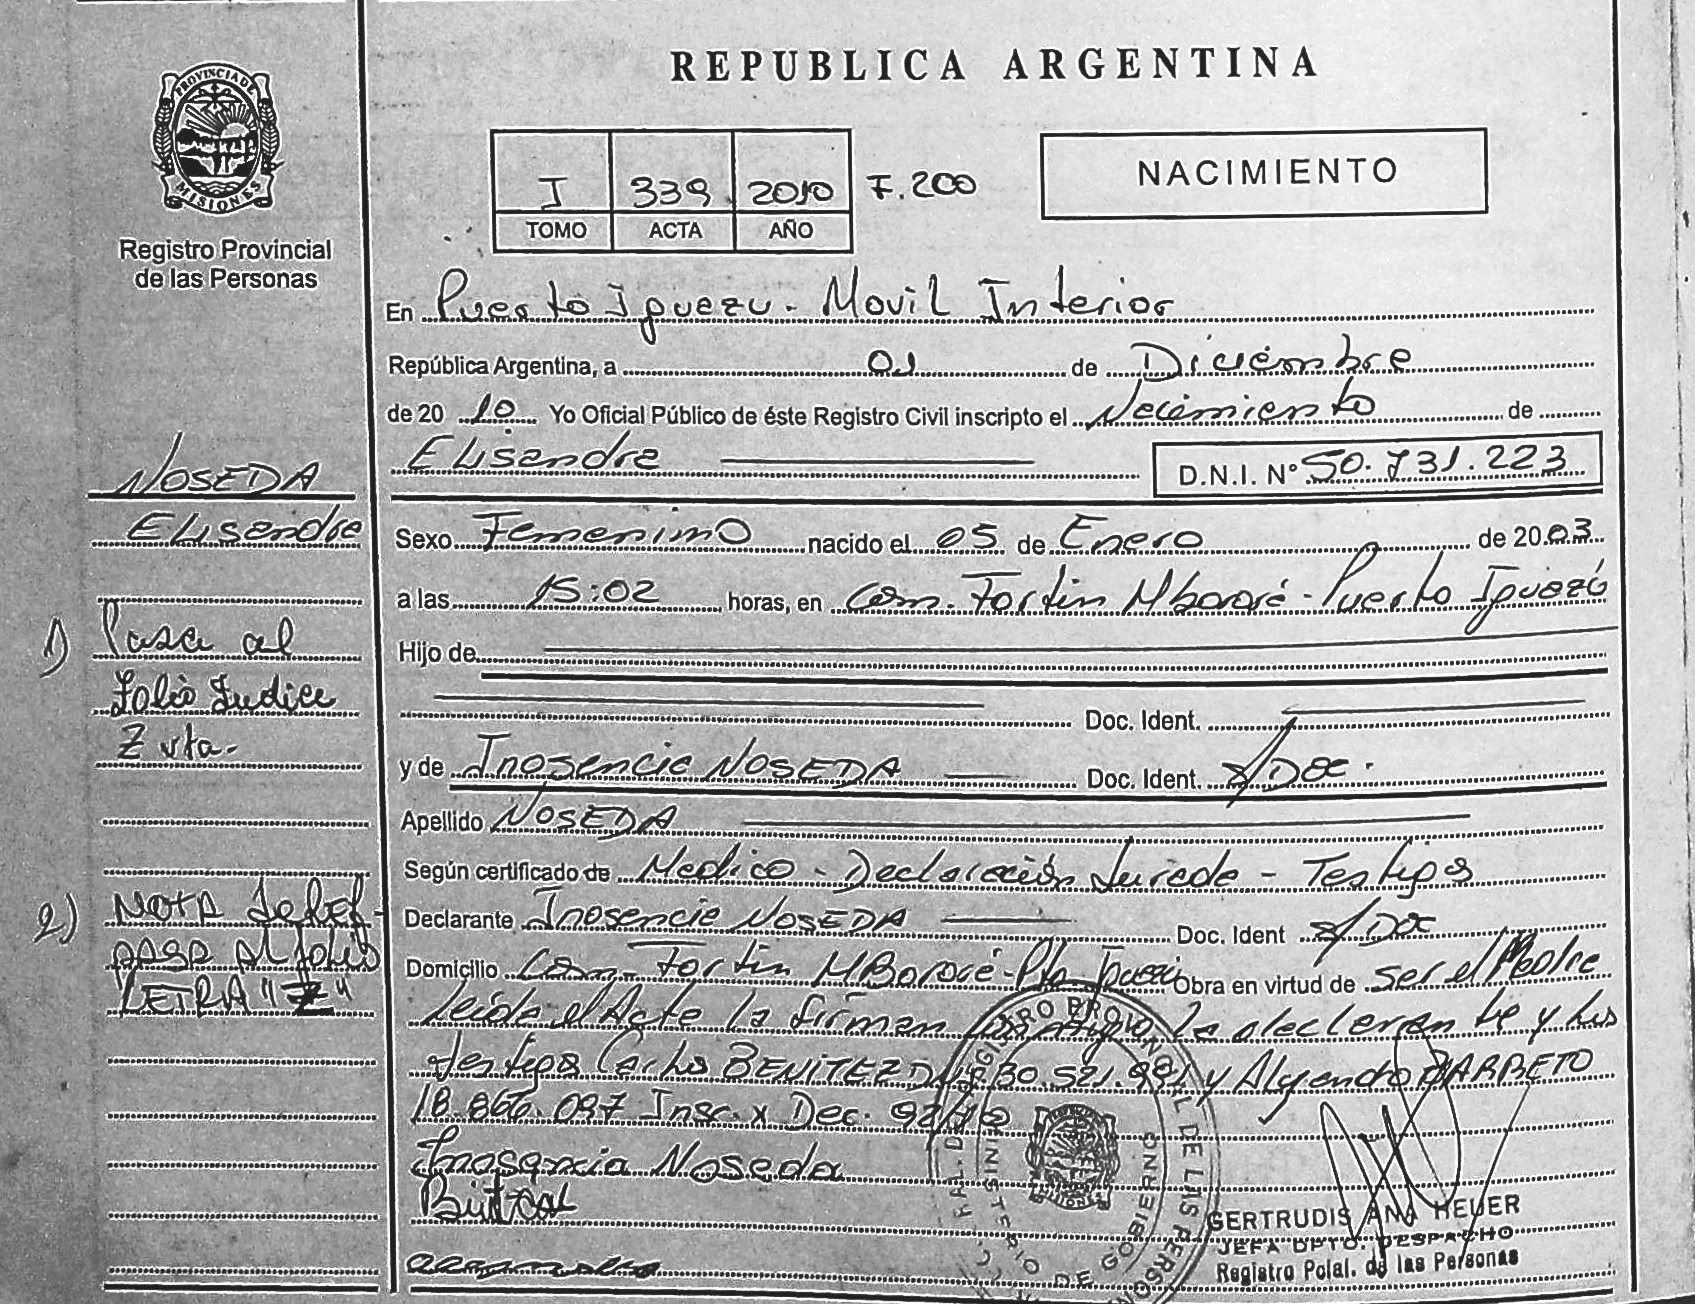 REPUBLICA ARGENTINA
PROVINCIA DE
MISIONES
Registro Provincial
de las Personas
I 339 2010 F.200
TOMO ACTA AÑO
NACIMIENTO
En Puerto Iguazu - Movil Interior
República Argentina, a 01 de Diciembre
de 20 10 Yo Oficial Público de éste Registro Civil inscripto el Nacimiento de
Elisandra D.N.I. Nº 50.731.223
NOSEDA
Elisandra
Sexo Femenino nacido el 05 de Enero de 20 03
a las 15:02 horas, en Com. Fortin Mbororé - Puerto Iguazú
1) Pasa al
Folio Indice
Z vta.
Hijo de
Doc. Ident.
y de Inosencia NOSEDA Doc. Ident. S/DOC.
Apellido NOSEDA
Según certificado de Medico - Declaración Jurada - Testigos
2) NOTA
PASA AL FOLIO
LETRA "Z"
Declarante Inosencia NOSEDA Doc. Ident S/DOC
Domicilio Com. Fortin MBororé - Pto Iguazú Obra en virtud de ser el Madre
Leida el Acta la firman conmigo la declarante y los
testigos Carlos BENITEZ DNI 30.521.991 y Alejandro BARRETO
18.866.097 Insc. x Dec. 92/10
Inosencia Noseda
GERTRUDIS ANA HEUER
JEFA DPTO. DESPACHO
Registro Pcial. de las Personas
REGISTRO PROVINCIAL DE LAS PERSONAS
MINISTERIO DE GOBIERNO